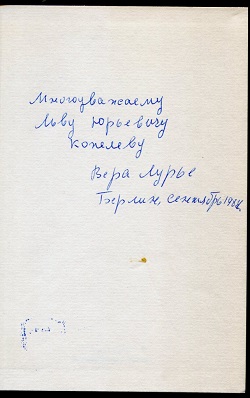 Многоуважаемому
Льву Юрьевичу
Копелеву
Вера Лурье
Берлин сентябрь